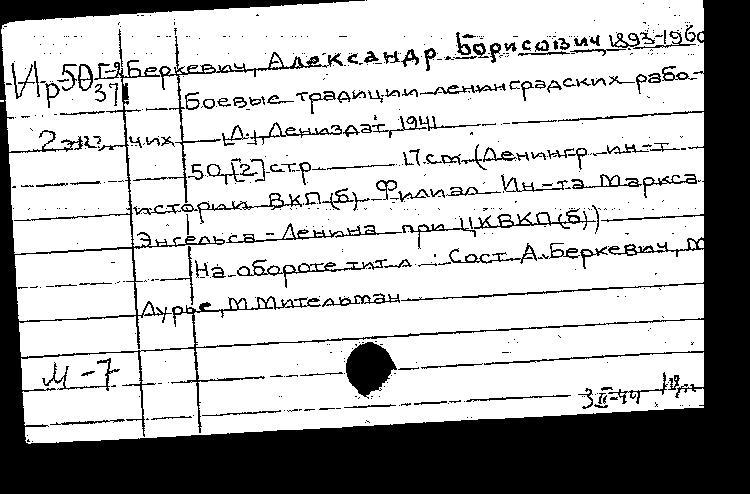 Ир50 Г-8 Беркевич, Александр Борисович, 1893-1960
37
Боевые традиции ленинградских рабо-
2 экз. чих [Л.], Лениздат, 1941
50, [2] стр 17см. (Ленингр ин-т
истории ВКП(б) Филиал Ин-та Маркса
Энгельса-Ленина при ЦКВКП(б))
На обороте тит л : Сост А. Беркевич, М
Лурье, М. Мительман
М-7
3 II-44